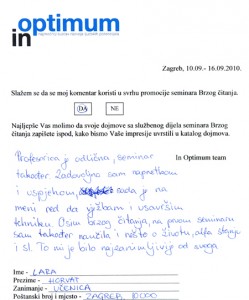 in optimum
Zagreb, 10.09.- 16.09.2010.
Slažem se da se moj komentar koristi u svrhu promocije seminara Brzog čitanja
DA NE
Najljepše Vas molimo da svoje dojmove sa službenog dijela seminara Brzog
čitanja zapišete ispod, kako bismo Vaše impresije uvrstili u katalog dojmova.
In Optimum team
Profesorica je odlična, seminar
također. Zadovoljna sam napretkom
i uspjehom, sada je na
meni red da vježbam i usavršim
tehniku. Osim brzog čitanja, na prvom seminaru
sam također naučila i nešto o životu, alfa stanju
i sl. To mi je bilo najzanimljivije od svega
Ime - LARA
Prezime - HORVAT
Zanimanje - UČENICA
Poštanski broj i mjesto - ZAGREB, 10000